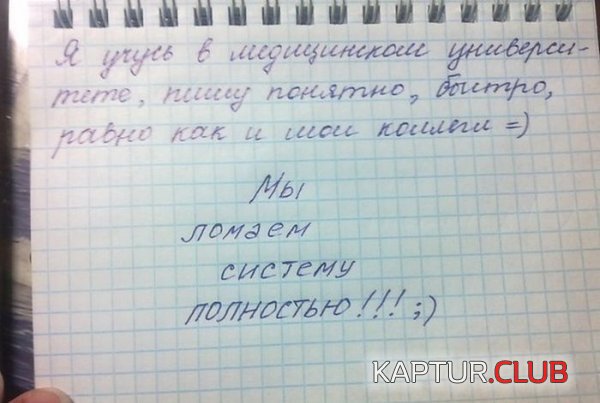 Я учусь в медицинском универси-
тете, пишу понятно, быстро,
равно как и мои коллеги =)
Мы
ломаем
систему
полностью!!! ;)
KAPTUR.CLUB